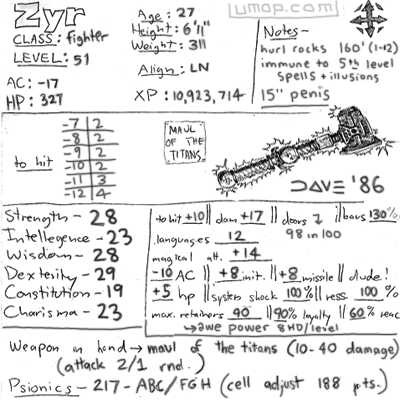 Zyr
umop.com
CLASS: fighter
LEVEL: 51
AC: -17
HP: 327
Age: 27
Height: 6'11"
Weight: 311
Align: LN
XP: 10,923,714
Notes-
hurl rocks 160' (1-12)
immune to 5th level
spells + illusions
15" penis
to hit
-7 | 2
-8 | 2
-9 | 2
-10 | 2
-11 | 3
-12 | 4
MAUL
OF THE
TITANS.
DAVE '86
Strength - 28
Intellegence - 23
Wisdom - 28
Dexterity - 29
Constitution - 19
Charisma - 23
to hit +10 || dam +17 || doors 2 || bars 130%
languages 12 98 in 100
magical att. +14
-10 AC || +8 init. || +8 missile || dude!
+5 hp || system shock 100% || ress. 100 %
max. retainers 90 || 90% loyalty || 60% reac
↳ awe power 8HD/level
Weapon in hand → maul of the titans (10-40 damage)
(attack 2/1 rnd.)
Psionics - 217 - ABC/FGH (cell adjust 188 pts.)